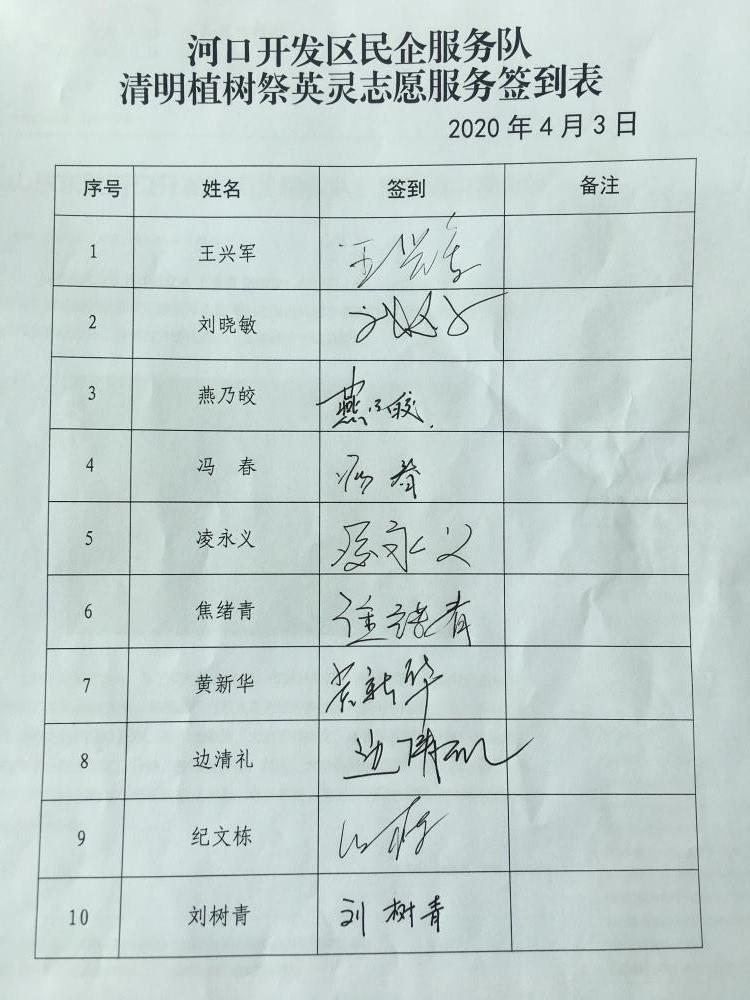 河口开发区民企服务队
清明植树祭英灵志愿服务签到表
2020年4月3日
序号 姓名 签到 备注
1 王兴军 王兴军
2 刘晓敏 刘晓敏
3 燕乃皎 燕乃皎
4 冯 春 冯春
5 凌永义 凌永义
6 焦绪青 焦绪青
7 黄新华 黄新华
8 边清礼 边清礼
9 纪文栋
10 刘树青 刘树青